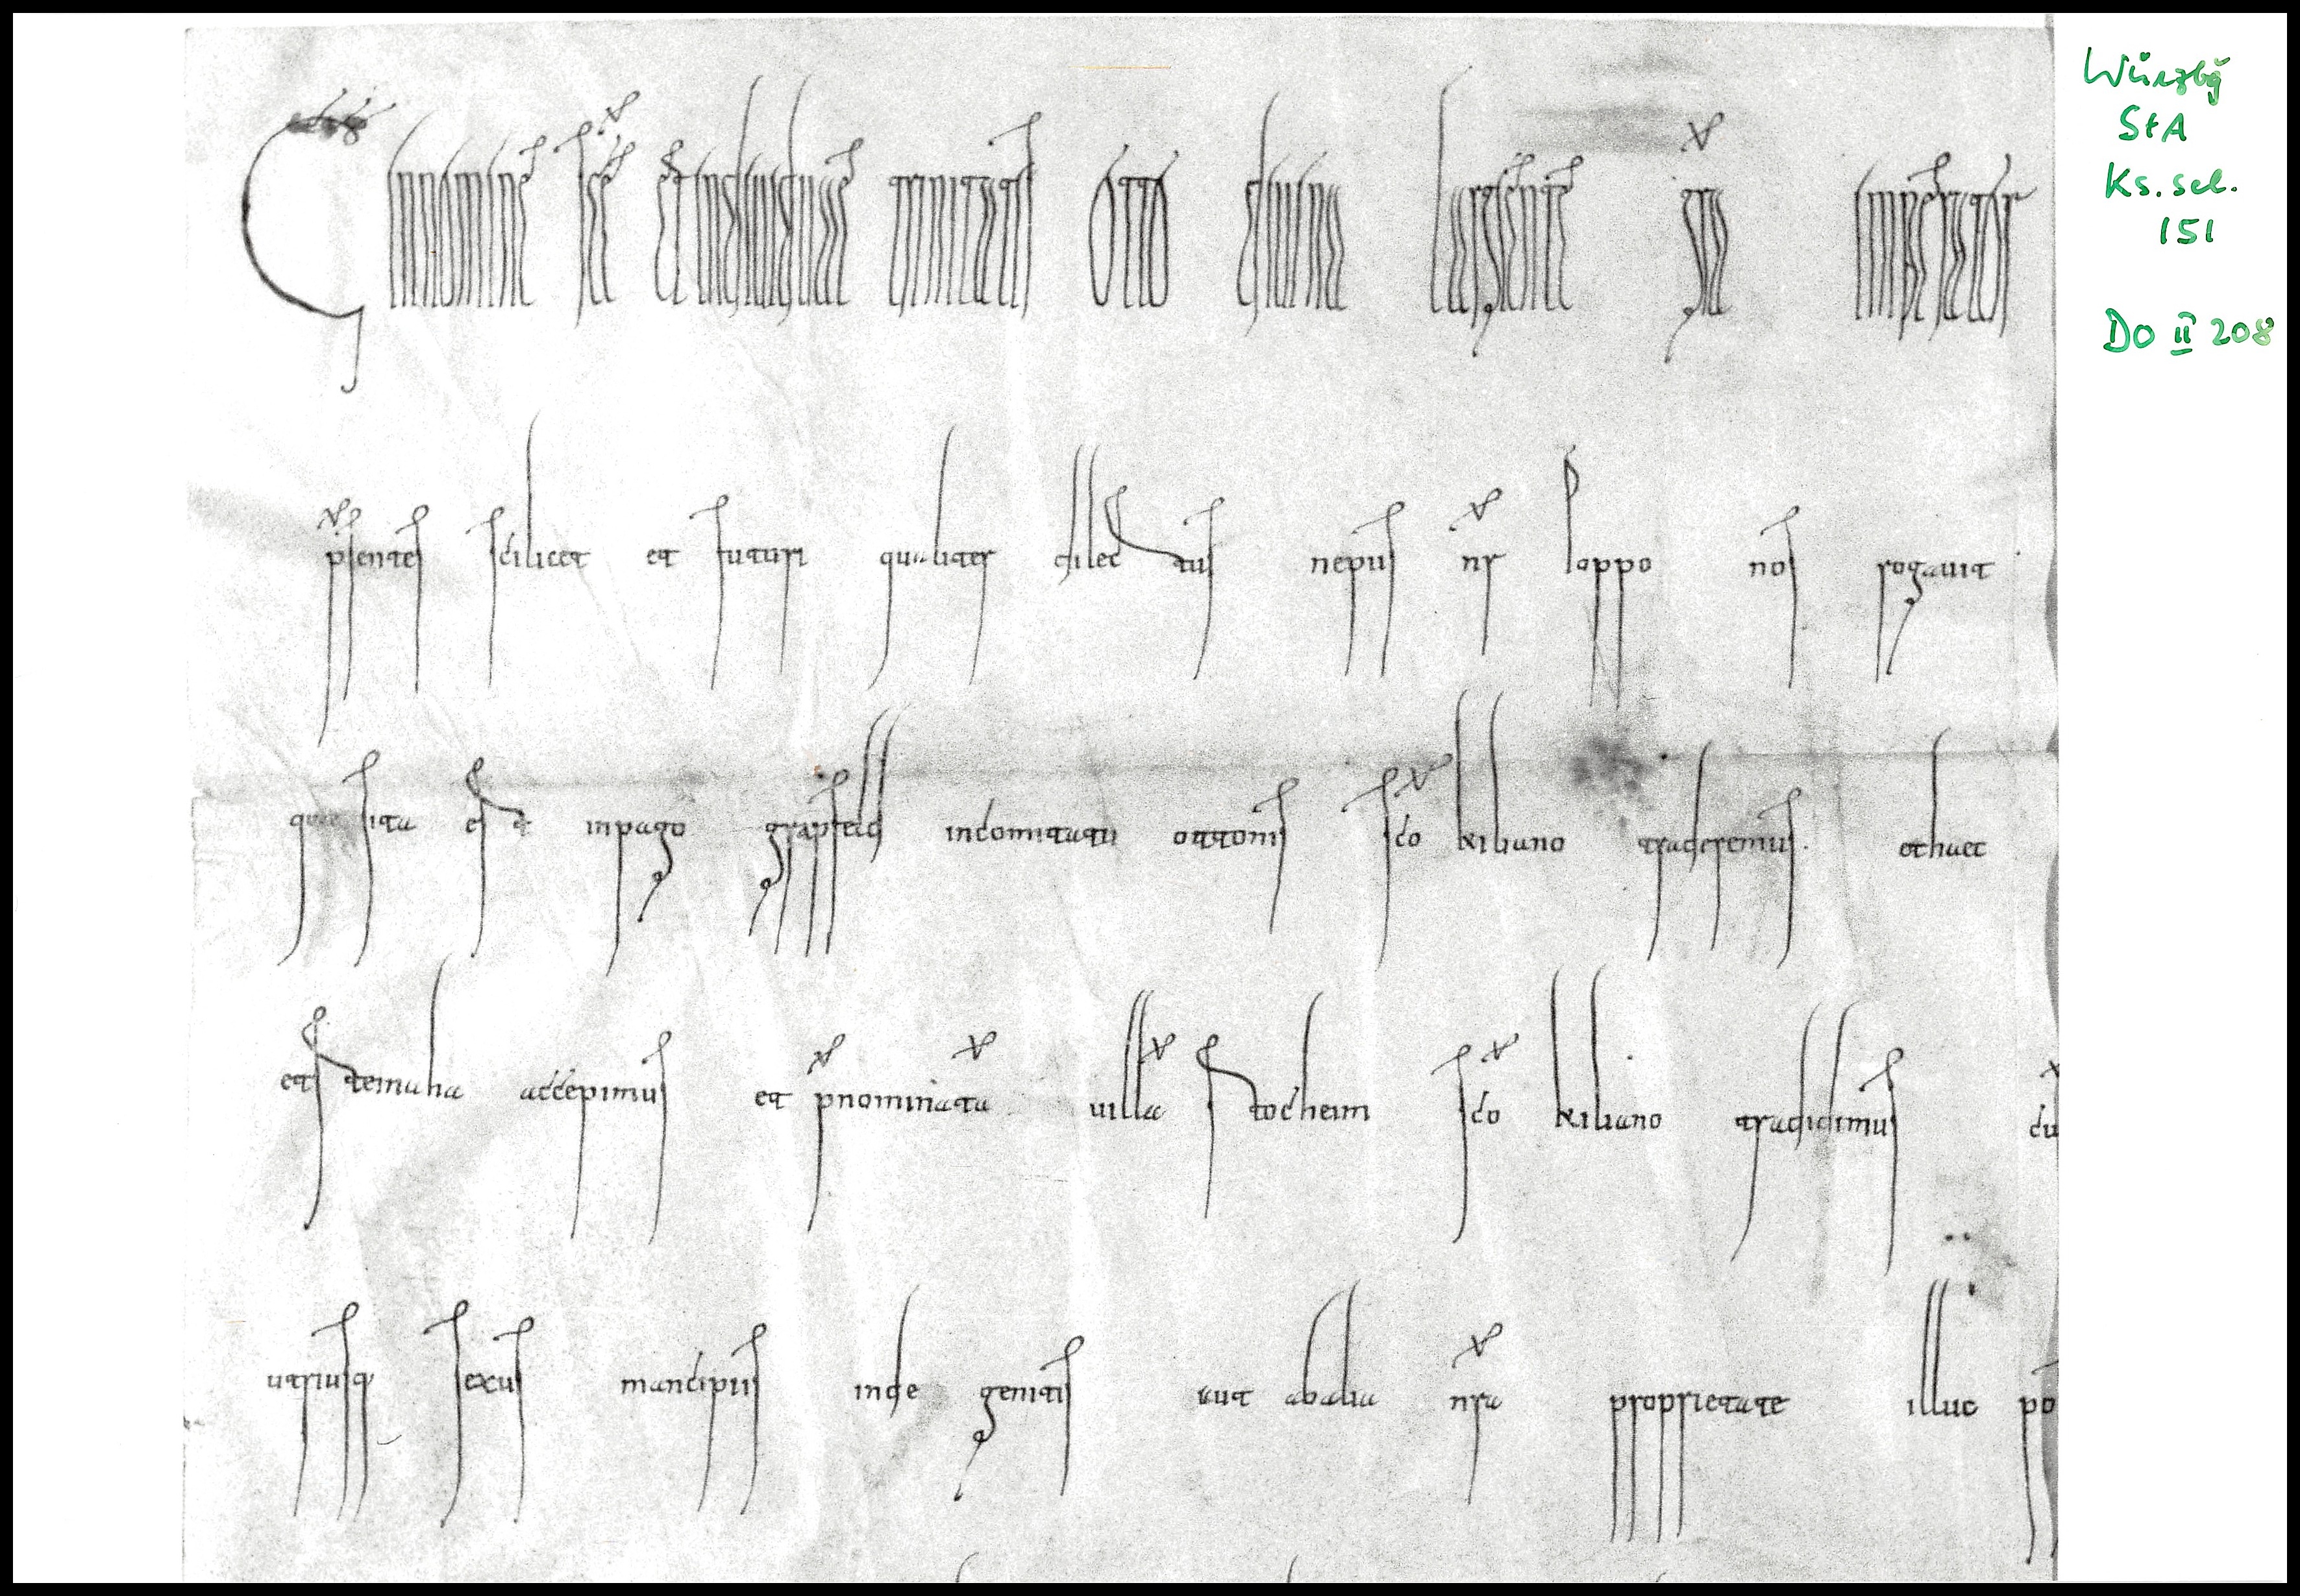 In nomine sce et individuae trinitatis Otto divina largiente gra imperator
psentes scilicet et futuri qualiter dilectus nepus nr Poppo nos rogavit
quae sita est in pago grapfeld in comitatu ottonis sco kiliano traderemus. et haec
et stemaha accepimus et pnominata villa stocheim sco kiliano tradidimus cu
utriusq sexus mancipiis inde genitis aut ab alia nra proprietate illuc po
Würzbg
StA
Ks. sel.
151
DO II 208